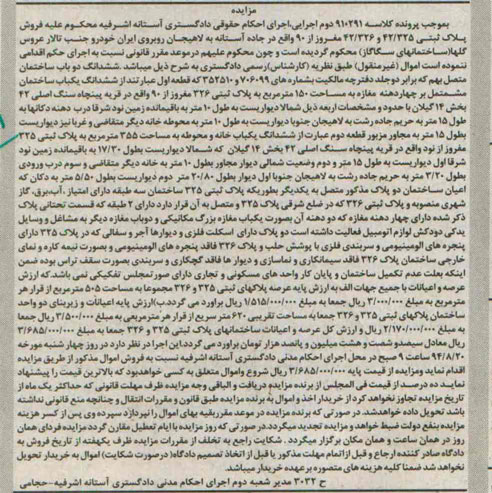 مزایده
بموجب پرونده کلاسه ۹۱۰۲۹۱ دوم اجرایی،اجرای احکام حقوقی دادگستری آستانه اشرفیه محکوم علیه فروش
پلاک ثبتی ۴۲/۳۲۵ و ۴۲/۳۲۶ مفروز از ۹۰ واقع در جاده آستانه به لاهیجان روبروی ایران خودرو جنب تالار عروس
گلها(ساختمانهای سگاگاز) محکوم گردیده است و چون محکوم علیهم درموعد مقرر قانونی نسبت به اجرای حکم اقدامی
ننموده است اموال (غیرمنقول) طبق نظریه (کارشناس)رسمی دادگستری به شرح ذیل میباشد .ششدانگ دو باب ساختمان
متصل بهم که برابر دوجلد دفترچه مالکیت بشماره های ۷۰۶۰۹۹ و ۳۵۲۵۱۰ که قطعه اول عبارتند از ششدانگ یکباب ساختمان
مشتمل بر چهاردهنه مغازه به مساحت ۱۵۰ مترمربع به پلاک ثبتی ۳۲۶ مفروز از ۹۰ واقع در قریه پینچاه سنگ اصلی ۴۲
بخش ۱۴ گیلان با حدود و مشخصات اربعه ذیل شمالا دیواریست به طول ۱۰ متر به باقیمانده زمین نود شرقا درب دهنه دکانها به
طول ۱۵ متر به حریم جاده رشت به لاهیجان جنوبا دیواریست به طول ۱۰ متر به محوطه خانه دیگر متقاضی و غربا نیز دیواریست
بطول ۱۵ متر به مجاور مزبور قطعه دوم عبارت از ششدانگ یکباب خانه و محوطه به مساحت ۳۵۵ مترمربع به پلاک ثبتی ۳۲۵
مفروز از نود واقع در قریه پینچاه سنگ اصلی ۴۲ بخش ۱۴ گیلان که شمالا دیواریست بطول ۱۷/۳۰ به باقیمانده زمین نود
شرقا اول دیواریست به طول ۱۵ متر و دوم وضعیت شمالی دیوار مجاور بطول ۱۰ متر به خانه دیگر متقاضی و سوم درب ورودی
بطول ۳/۲۰ متر به حریم جاده رشت به لاهیجان جنوبا اول دیوار بطول ۲۰/۸۰ متر دوم دیواریست بطول ۵/۵۰ متر به دکان که
اعیان ساختمان دو پلاک مذکور متصل به یکدیگر بطوریکه پلاک ثبتی ۳۲۵ ساختمان سه طبقه دارای امتیاز ،آب،برق، گاز
شهری منصوبه و پلاک ثبتی ۳۲۶ که در ضلع شرقی پلاک ۳۲۵ و متصل به آن قرار دارد دارای ۲ طبقه که قسمت تحتانی پلاک
ذکر شده دارای چهار دهنه مغازه که دو دهنه آن بصورت یکباب مغازه بزرگ مکانیکی و دوباب مغازه دیگر به مشاغل و وسایل
یدکی دودکش لوازم اتومبیل فعالیت داشته است دو پلاک دارای اسکلت فلزی و دیوارها آجر و سفالی که در پلاک ۳۲۵ دارای
پنجره های الومینیومی و سربندی فلزی با پوشش حلب و پلاک ۳۲۶ فاقد پنجره های الومینیومی و بصورت نیمه کاره و نمای
خارجی ساختمان پلاک ۳۲۶ فاقد سیمانکاری و نماسازی و دیوار ها فاقد گچکاری و سربندی بصورت سقف تراس بوده ضمن
اینکه بعلت عدم تکمیل ساختمان و پایان کار واحد های مسکونی و تجاری دارای صورتمجلس تفکیکی نمی باشد.که ارزش
عرصه و اعیانات با جمیع جهات الف به ارزش پایه عرصه پلاکهای ثبتی ۳۲۵ و ۳۲۶ مجموعا به مساحت ۵۰۵ مترمربع از قرار هر
مترمربع به مبلغ ۳/۰۰۰/۰۰۰ ریال جمعا به مبلغ ۱/۵۱۵/۰۰۰/۰۰۰ ریال براورد می گردد.ب)ارزش پایه اعیانات و زیربنای دو واحد
ساختمان پلاکهای ثبتی ۳۲۵ و ۳۲۶ جمعا به مساحت تقریبی ۶۲۰ متر سریع از قرار هر مترمربعی به مبلغ ۳/۵۰۰/۰۰۰ ریال جمعا
به مبلغ ۲/۱۷۰/۰۰۰/۰۰۰ ریال و ارزش کل عرصه و اعیانات ساختمانهای پلاک ثبتی ۳۲۵ و ۳۲۶ جمعا به مبلغ ۳/۶۸۵/۰۰۰/۰۰۰
ریال معادل سیصدو شصت و هشت میلیون و پانصد هزار تومان براورد می گردد.این اجرا در نظر دارد در روز چهار شنبه مورخه
۹۴/۸/۲۰ ساعت ۹ صبح در محل اجرای احکام مدنی دادگستری آستانه اشرفیه نسبت به فروش اموال مذکور از طریق مزایده
اقدام نماید ومزایده از قیمت پایه ۳/۶۸۵/۰۰۰/۰۰۰ ریال شروع واموال متعلق به کسی خواهدبود که بالاترین قیمت را پیشنهاد
نماید.ده درصد از قیمت فی المجلس از برنده مزایده دریافت و الباقی وجه مزایده ظرف مهلت قانونی که حداکثر یک ماه از
تاریخ مزایده تجاوز نخواهد کرد از خریدار اخذ و اموال به برنده مزایده طبق قانون و مقررات انتقال و چنانچه منع قانونی نداشته
باشد تحویل داده خواهدشد. در صورتی که برنده مزایده در موعد مقرربقیه بهای اموال را نپردازد سپرده وی پس از کسر هزینه
مزایده بنفع دولت ضبط خواهد و مزایده تجدید میگردد.در صورتی که روز مزایده با ایام تعطیل مقارن گردد مزایده فردای همان
روز در همان ساعت و همان مکان برگزار میگردد . شکایت راجع به تخلف از مقررات مزایده ظرف یکهفته از تاریخ فروش به
دادگاه صادر کننده ارجاع و قبل از اتمام مهلت مذکور یا قبل از اتخاذ تصمیم دادگاه( درصورت شکایت) اموال به خریدار تحویل
نخواهد شد ضمنا کلیه هزینه های متصوره برعهده خریدار میباشد.
ح ۳۰۳۲ مدیر شعبه دوم اجرای احکام مدنی دادگستری آستانه اشرفیه-حجامی